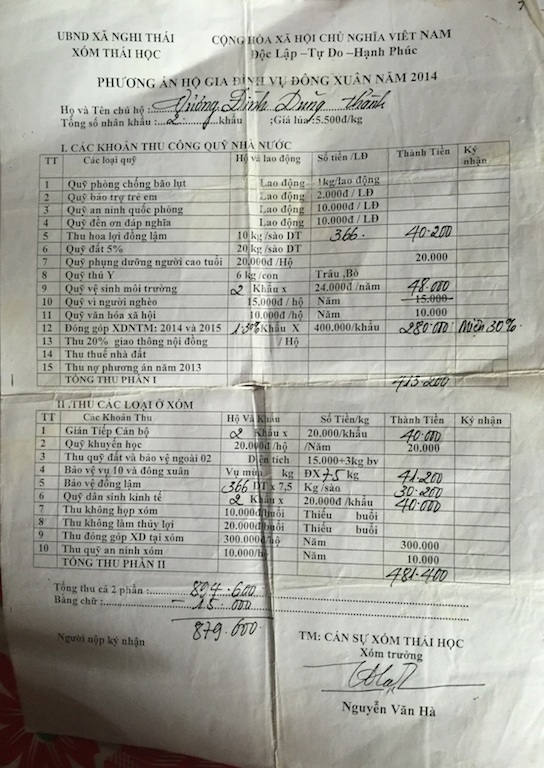 UBND XÃ NGHI THÁI CỘNG HÒA XÃ HỘI CHỦ NGHĨA VIỆT NAM
XÓM THÁI HỌC Độc Lập –Tự Do –Hạnh Phúc
PHƯƠNG ÁN HỘ GIA ĐÌNH VỤ ĐÔNG XUÂN NĂM 2014
Họ và Tên chủ hộ :......Vương Đình Dũng thành
Tổng số nhân khẩu :....2......khẩu ;Giá lúa :5.500đ/kg
I. CÁC KHOẢN THU CÔNG QUỸ NHÀ NƯỚC
TT Các loại quỹ Hộ và lao động Số tiền /LĐ Thành Tiền Ký nhận
1 Quỹ phòng chống bão lụt Lao động 1kg/lao động
2 Quỹ bảo trợ trẻ em Lao động 2.000đ / LĐ
3 Quỹ an ninh quốc phòng Lao động 10.000đ / LĐ
4 Quỹ đền ơn đáp nghĩa Lao động 10.000đ / LĐ
5 Thu hoa lợi đồng lậm 10 kg /sào DT 366. 40.200
6 Quỹ đất 5% 20 kg /sào DT
7 Quỹ phụng dưỡng người cao tuổi 20.000đ /Hộ 20.000
8 Quỹ thú Y 6 kg /con Trâu ,Bò
9 Quỹ vệ sinh môi trường 2 Khẩu x 24.000đ /năm 48.000
10 Quỹ vì người nghèo 15.000đ / hộ Năm 15.000
11 Quỹ văn hóa xã hội 10.000đ /hộ Năm 10.000
12 Đóng góp XDNTM: 2014 và 2015 Khẩu X 400.000/khẩu 280.000 Miện 30%
13 Thu 20% giao thông nội đồng / Hộ
14 Thu thuế nhà đất
15 Thu nợ phương án năm 2013
TỔNG THU PHẦN I 413.200
II .THU CÁC LOẠI Ở XÓM
TT Các Khoản Thu Hộ Và Khẩu Số Tiền/kg Thành Tiền Ký nhận
1 Gián Tiếp Cán bộ 2 Khẩu x 20.000/khẩu 40.000
2 Quỹ khuyến học 20.000đ /hộ /Năm 20.000
3 Thu quỹ đất và bảo vệ ngoài 02 Diện tích 15.000+3kg bv
4 Bảo vệ vụ 10 và đông xuân Vụ mùa kg ĐX 7.5 kg 41.200
5 Bảo vệ đồng lậm 366 DT x 7,5 Kg /sào 30.200
6 Quỹ dân sinh kinh tế 2 Khẩu x 20.000đ /khẩu 40.000
7 Thu không họp xóm 10.000đ/buổi Thiếu buổi
8 Thu không làm thủy lợi 20.000đ/buổi Thiếu buổi
9 Thu đóng góp XD tại xóm 300.000đ/hộ Năm 300.000
10 Thu quỹ an ninh xóm 10.000/hộ Năm 10.000
TỔNG THU PHẦN II 481.400
Tổng thu cả 2 phần :......894.600
Bằng chữ :......15.000
879.600
Người nộp ký nhận TM: CÁN SỰ XÓM THÁI HỌC
Xóm trưởng
Nguyễn Văn Hà